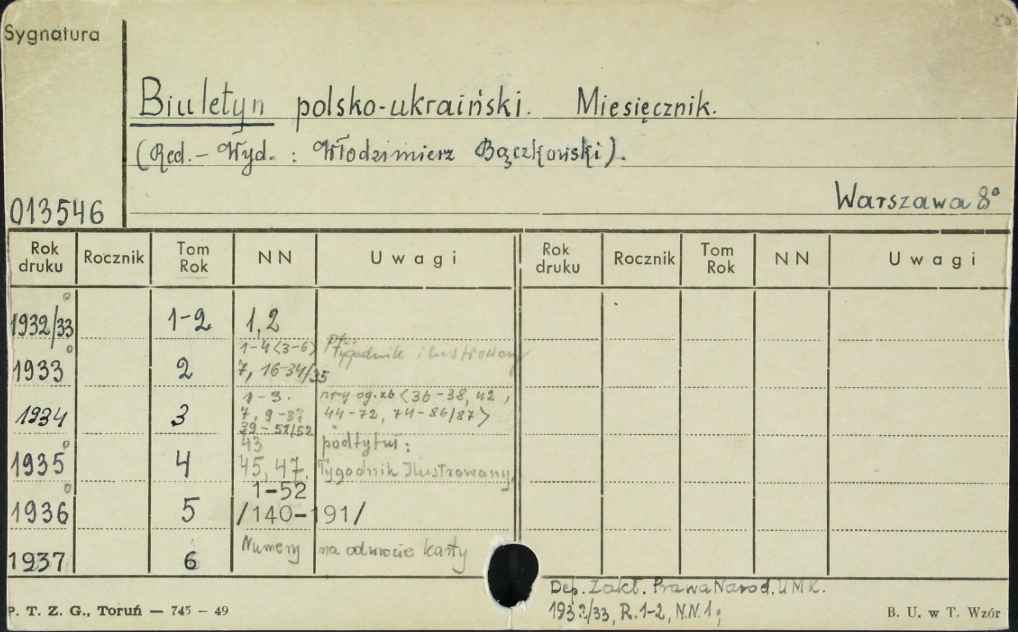 Sygnatura
Biuletyn polsko-ukraiński. Miesięcznik.
(Red.-Wyd. : Włodzimierz Bączkowski).
013546
Warszawa 8°
Rok druku Rocznik Tom Rok NN Uwagi Rok druku Rocznik Tom Rok NN Uwagi
1932/33 1-2 1,2
1-4(3-6)
Tygodnik ilustrowany
1933 2 7, 16-34/35
1-3. nry og. zb <36-38, 42,
1934 3 7, 9-37 44-72, 74-86/87>
39-51/52
43 podtytuł:
1935 4 45, 47. Tygodnik Ilustrowany.
1-52
1936 5 /140-191/
1937 6 Numery na odwrocie karty
Dep. Zakł. Prawa Narod. UMK.
1932/33, R. 1-2, N.N. 1;
P. T. Z. G., Toruń — 745 – 49
B. U. w T. Wzór